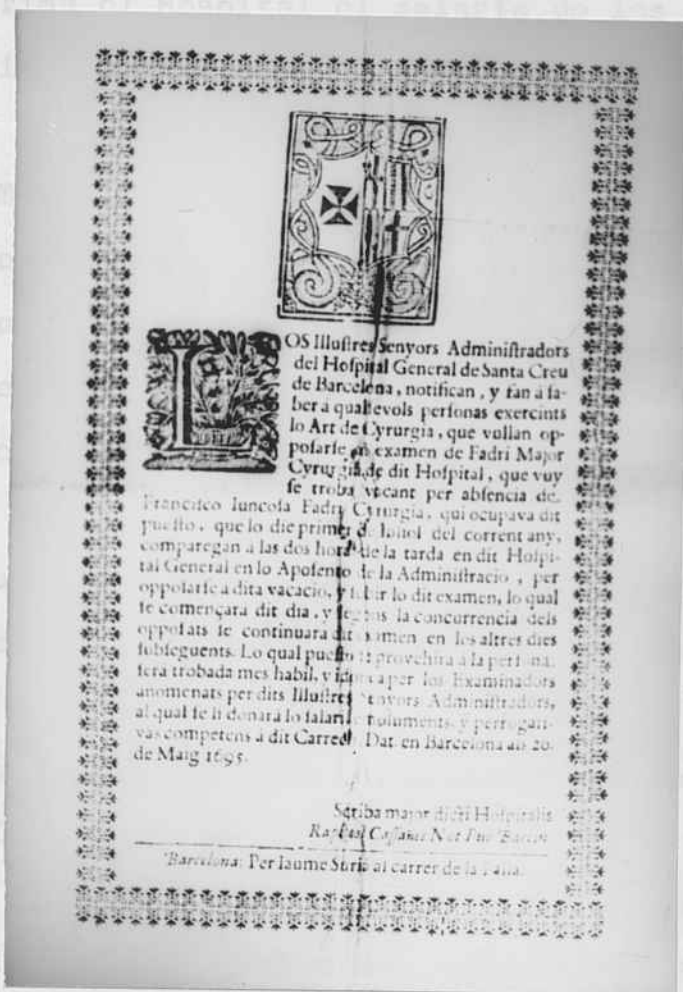 LOS Illuſtres Senyors Adminiſtradors
del Hoſpital General de Santa Creu
de Barcelona, notifican, y fan a ſa-
ber a qualſevols perſonas exercints
lo Art de Cyrurgia, que vullan op-
poſarſe al examen de Fadri Major
Cyrurgia de dit Hoſpital, que vuy
ſe troba vacant per abſencia de
Franciſco Iuncoſa Fadri Cyrurgia, qui ocupava dit
pueſto, que lo die primer de Iuliol del corrent any,
comparegan a las dos horas de la tarda en dit Hoſpi-
tal General en lo Apoſento de la Adminiſtracio, per
oppoſarſe a dita vacacio, y ſubir lo dit examen, lo qual
ſe començara dit dia, y ſegons la concurrencia dels
oppoſats ſe continuara dit examen en los altres dies
ſubſeguents. Lo qual pueſto ſe provehira a la perſona,
ſera trobada mes habil, y idonea per los Examinadors
anomenats per dits Illuſtres Senyors Adminiſtradors,
al qual ſe li donara lo ſalari, emoluments, y perrogati-
vas competens a dit Carrech. Dat. en Barcelona als 20.
de Maig 1695.
Scriba major dicti Hoſpitalis
Raphael Not. Pub. Barcin.
Barcelona: Per Iaume Suria al carrer de la Palla.